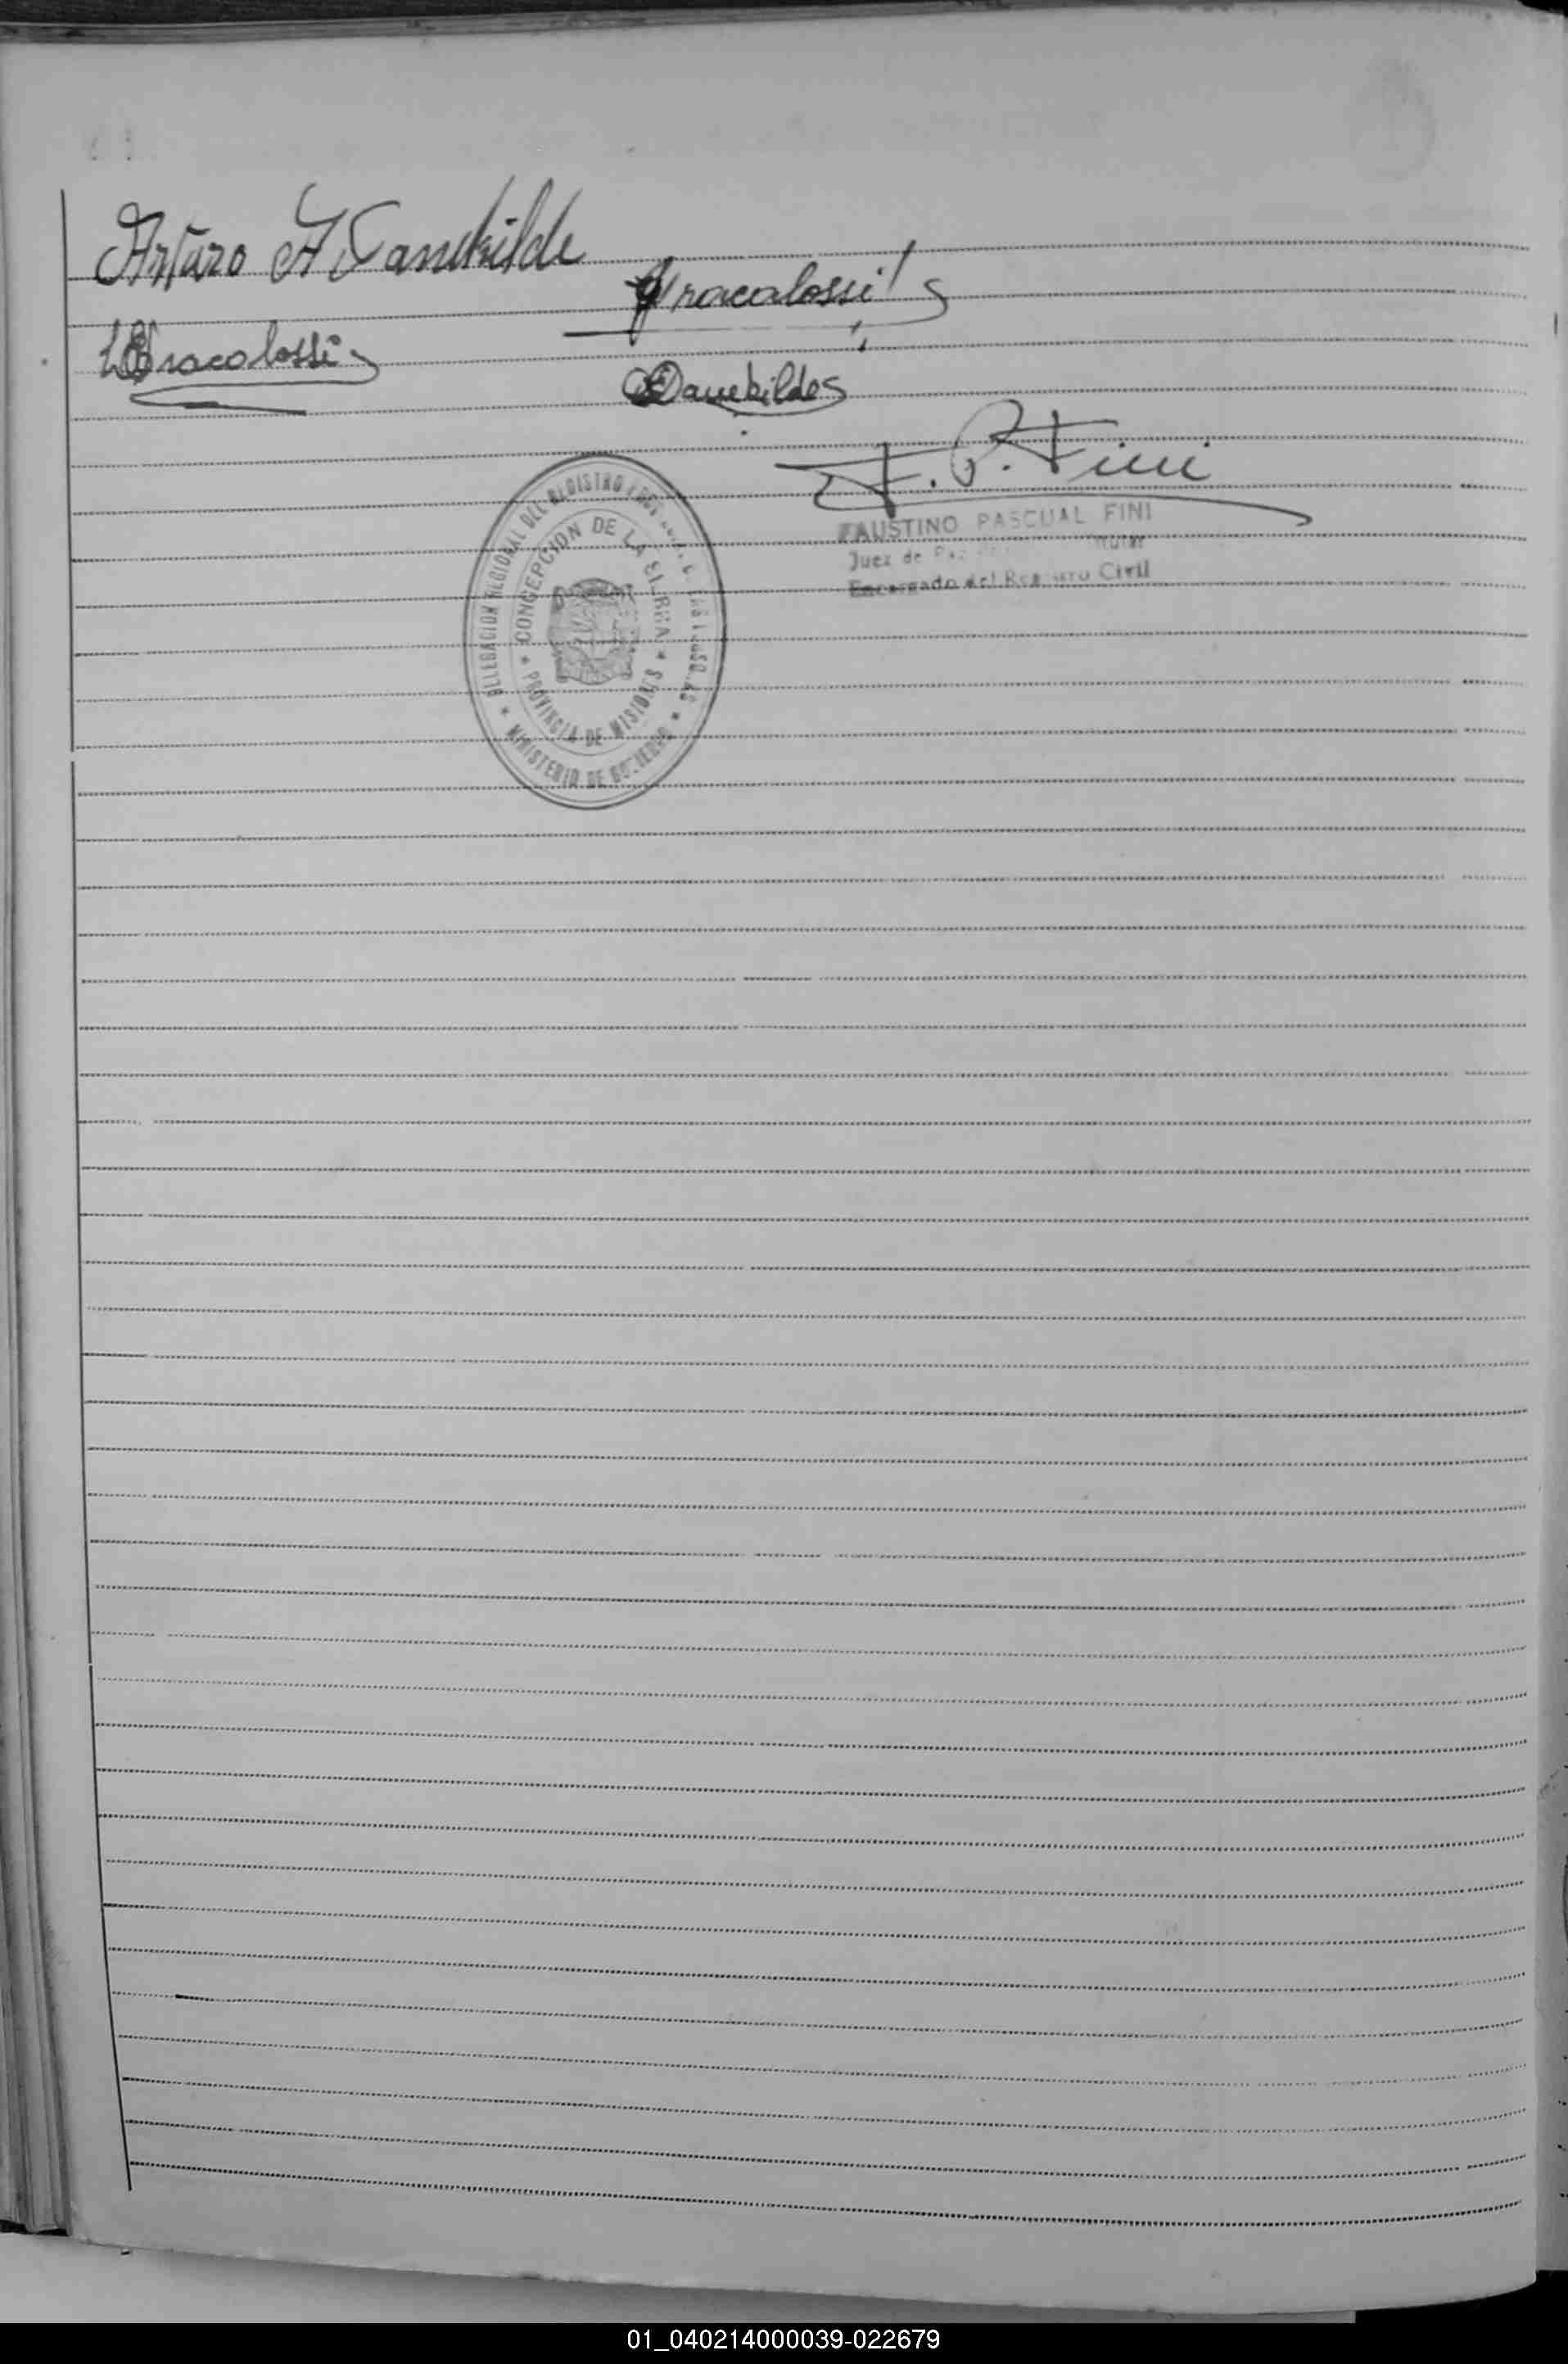 Arturo A Danekilde
Tracalossi
Tracalossi
Danekilde
F. P. Fini
FAUSTINO PASCUAL FINI
Juez de Paz Titular
Encargado del Registro Civil
DELEGACION REGIONAL DEL REGISTRO
CONCEPCION DE LA SIERRA
PROVINCIA DE MISIONES
MINISTERIO DE GOBIERNO
01_040214000039-022679